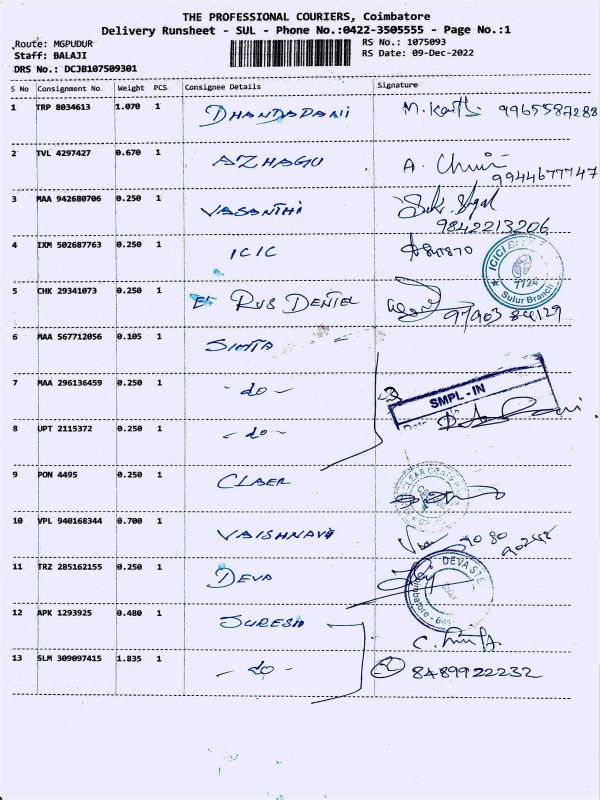 THE PROFESSIONAL COURIERS, Coimbatore
Delivery Runsheet - SUL - Phone No.:0422-3505555 - Page No.:1
Route: MGPUDUR RS No.: 1075093
Staff: BALAJI RS Date: 09-Dec-2022
DRS No.: DCJB107509301
S No Consignment No Weight PCS Consignee Details Signature
1 TRP 8034613 1.070 1 DHANDAPANI M. Karthi 9965587288
2 TVL 4297427 0.670 1 AZHAGU A.
9944677747
3 MAA 942680706 0.250 1 VASANTHI
9842213206
4 IXM 502687763 0.250 1 ICIC
ICICI BANK
7724
Sulur Branch
5 CHK 29341073 0.250 1 RVS DENTEL
6 MAA 567712056 0.105 1 SIMTA
7 MAA 296136459 0.250 1 - do -
SMPL - IN
8 UPT 2115372 0.250 1 - do -
9 PON 4495 0.250 1
10 VPL 940168344 0.700 1 VAISHNAVI
11 TRZ 285162155 0.250 1 DEVA
DEVASTE
12 APK 1293925 0.480 1 SURESH
13 SLM 309097415 1.835 1 - do - 2 8489922232